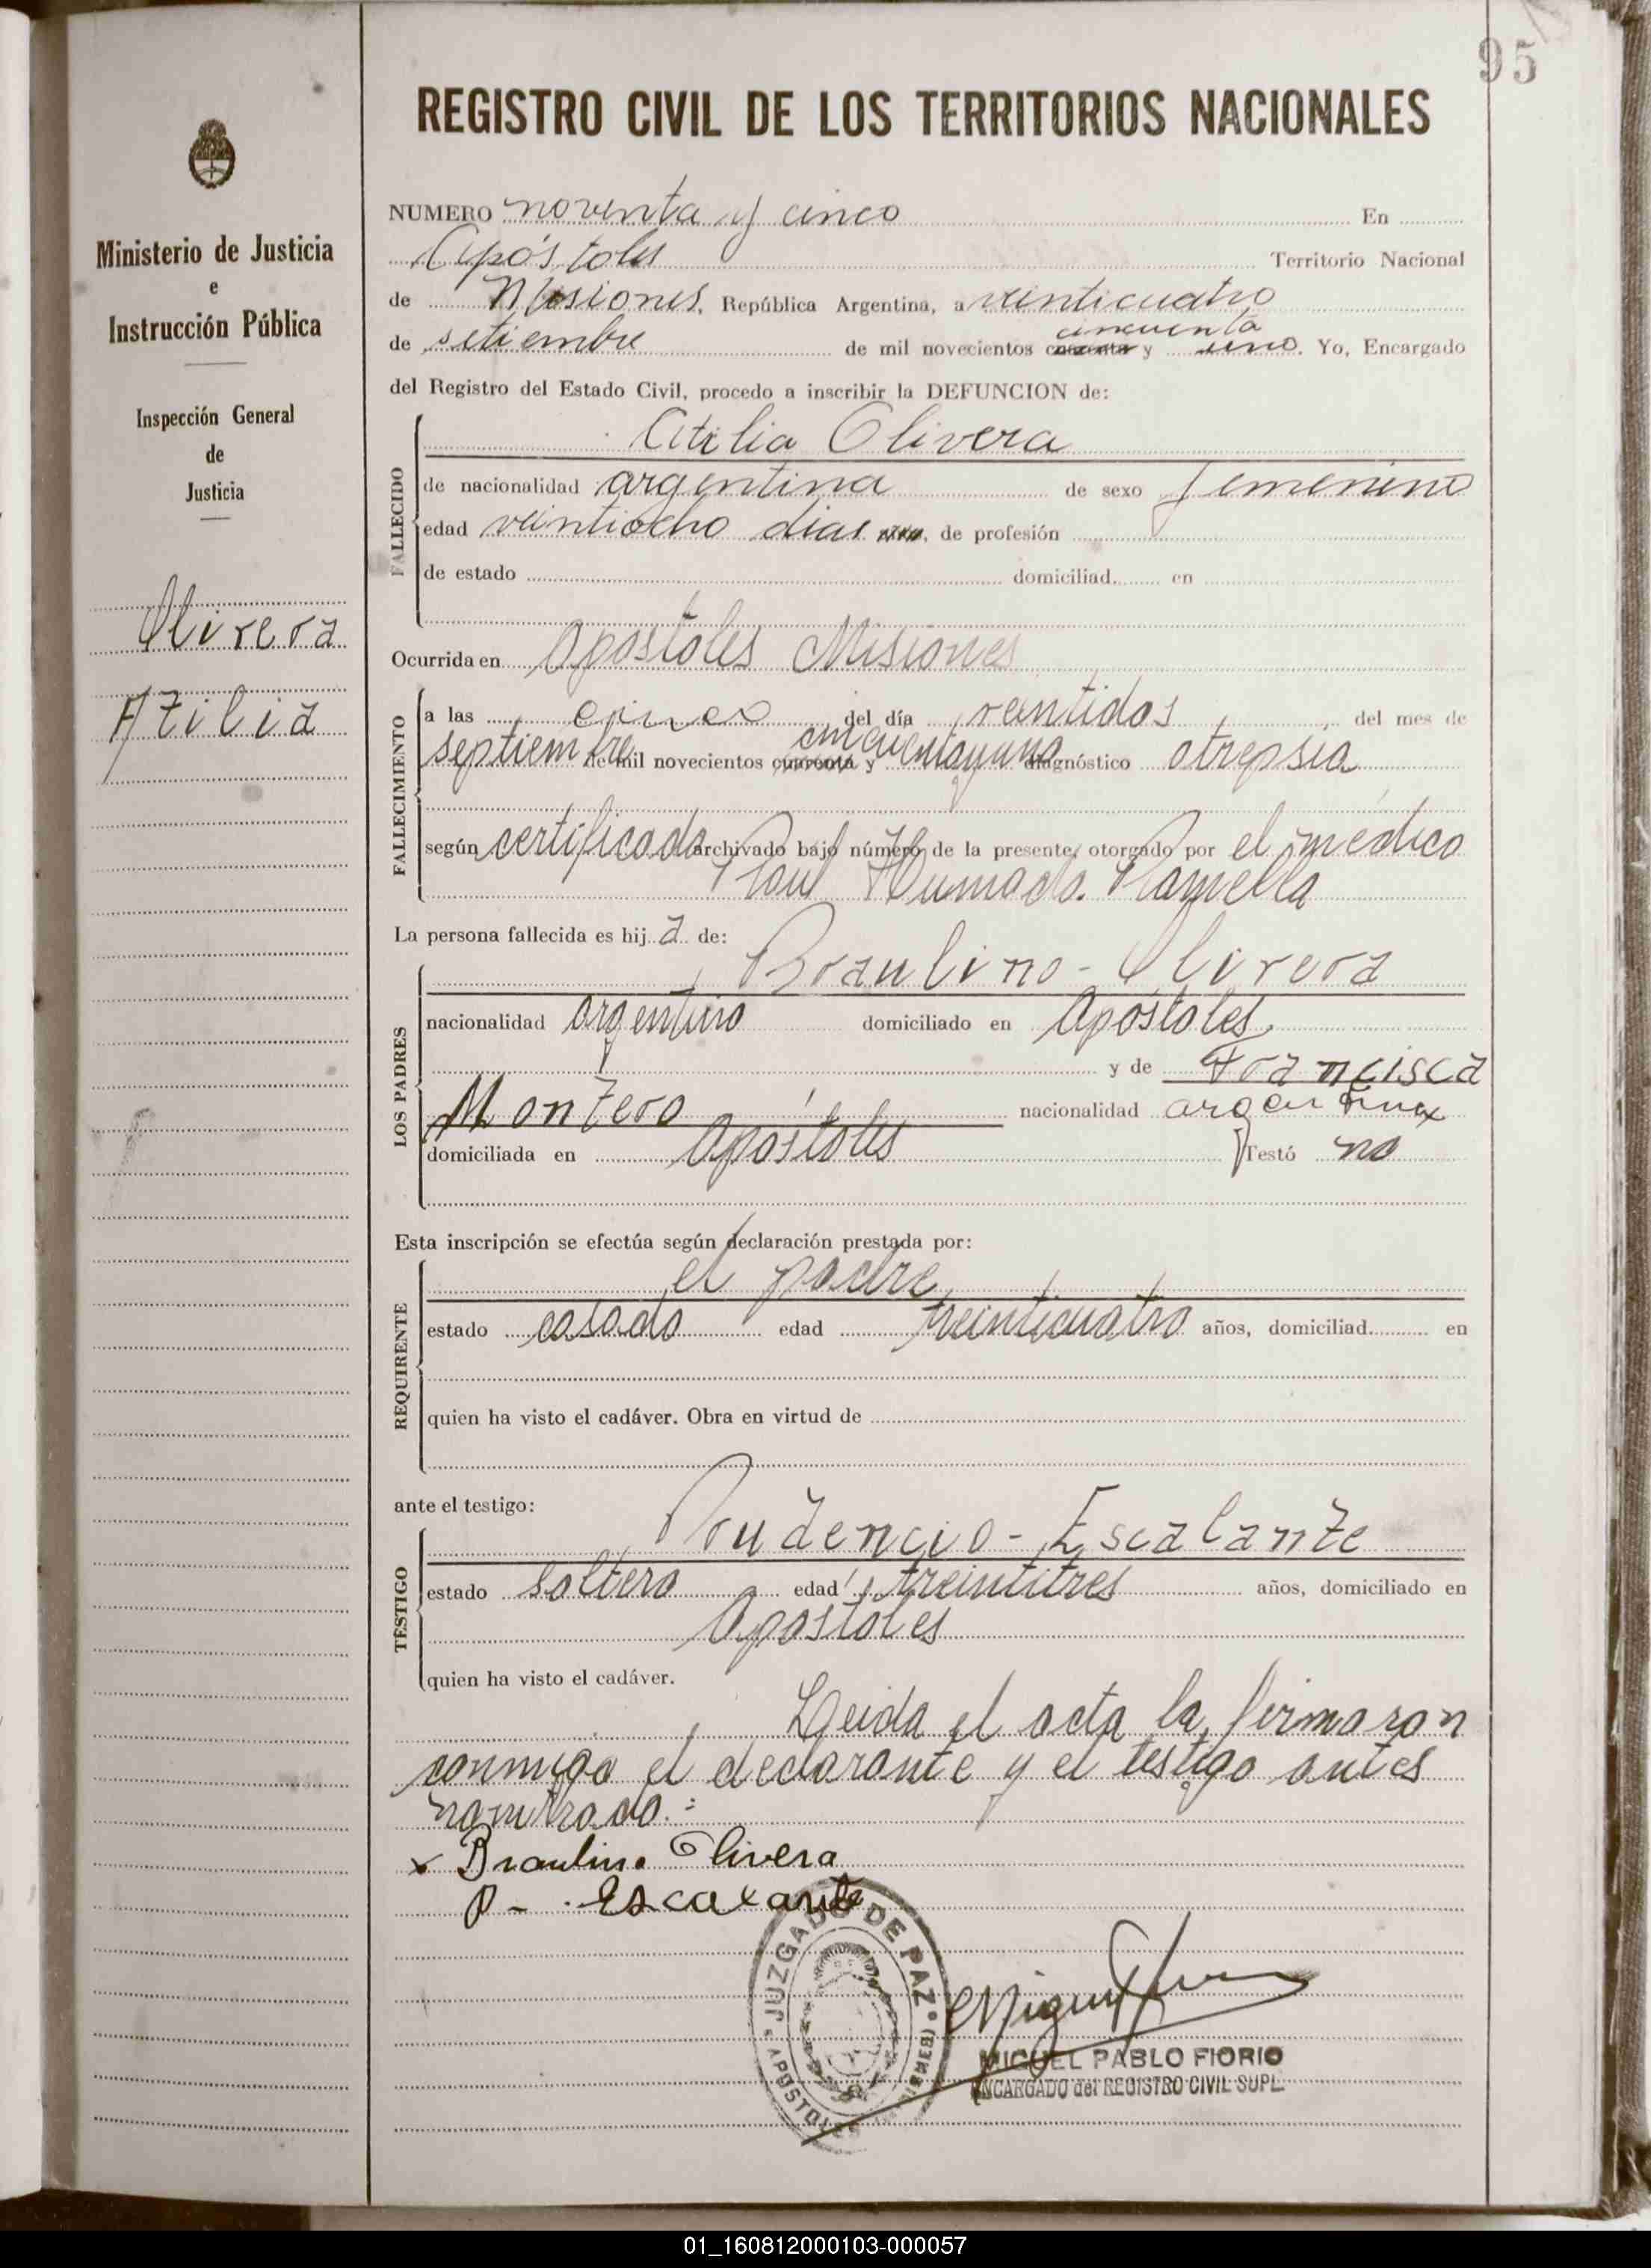 95
REGISTRO CIVIL DE LOS TERRITORIOS NACIONALES
Ministerio de Justicia
e
Instrucción Pública
Inspección General
de
Justicia
Olivera
Atilia
NUMERO noventa y cinco En
Apóstoles Territorio Nacional
de Misiones, República Argentina, a veinticuatro
de setiembre de mil novecientos cuarenta cincuenta y uno. Yo, Encargado
del Registro del Estado Civil, procedo a inscribir la DEFUNCION de:
FALLECIDO
Atilia Olivera
de nacionalidad argentina de sexo femenino
edad veintiocho dias años, de profesión
de estado domiciliad en
Ocurrida en Apostoles Misiones
FALLECIMIENTO
a las cinco del día veintidos, del mes de
septiembre de mil novecientos cuarenta y cincuentayuno diagnóstico atrepsia
según certificado archivado bajo número de la presente, otorgado por el médico
Raul Humada Ramella
La persona fallecida es hija de:
LOS PADRES
Braulino - Olivera
nacionalidad argentino domiciliado en Apóstoles
y de Francisca
Montero nacionalidad argentina
domiciliada en Apóstoles Testó no
Esta inscripción se efectúa según declaración prestada por:
REQUIRENTE
el padre
estado casado edad treinticuatro años, domiciliad en
quien ha visto el cadáver. Obra en virtud de
ante el testigo:
TESTIGO
Prudencio - Escalante
estado soltero edad treintitres años, domiciliado en
Apostoles
quien ha visto el cadáver.
Leida el acta la firmaron
conmigo el declarante y el testigo antes
nombrado.=
x Braulino Olivera
P - Escalante
JUZGADO DE PAZ
APOSTOLES
MIGUEL PABLO FIORIO
ENCARGADO del REGISTRO CIVIL SUPL.
01_160812000103-000057